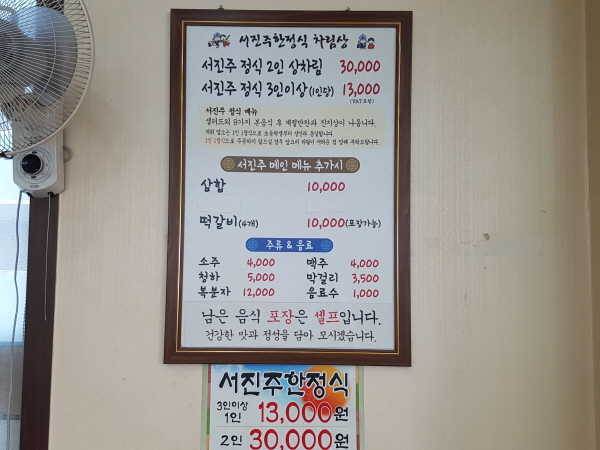 서진주한정식 차림상
서진주 정식 2인 상차림 30,000
서진주 정식 3인이상(1인당) 13,000
(VAT포함)
서진주 정식 메뉴
샐러드외 9가지 본음식 후 계절반찬과 진지상이 나옵니다.
저희 업소는 1인 1정식으로 초등학생부터 성인과 동일합니다.
서진주 메인 메뉴 추가시
삼합 10,000
떡갈비(4개) 10,000(포장가능)
주류 & 음료
소주 4,000 맥주 4,000
청하 5,000 막걸리 3,500
복분자 12,000 음료수 1,000
남은 음식 포장은 셀프입니다.
건강한 맛과 정성을 담아 모시겠습니다.
서진주한정식
3인이상
1인 13,000원
2인 30,000원